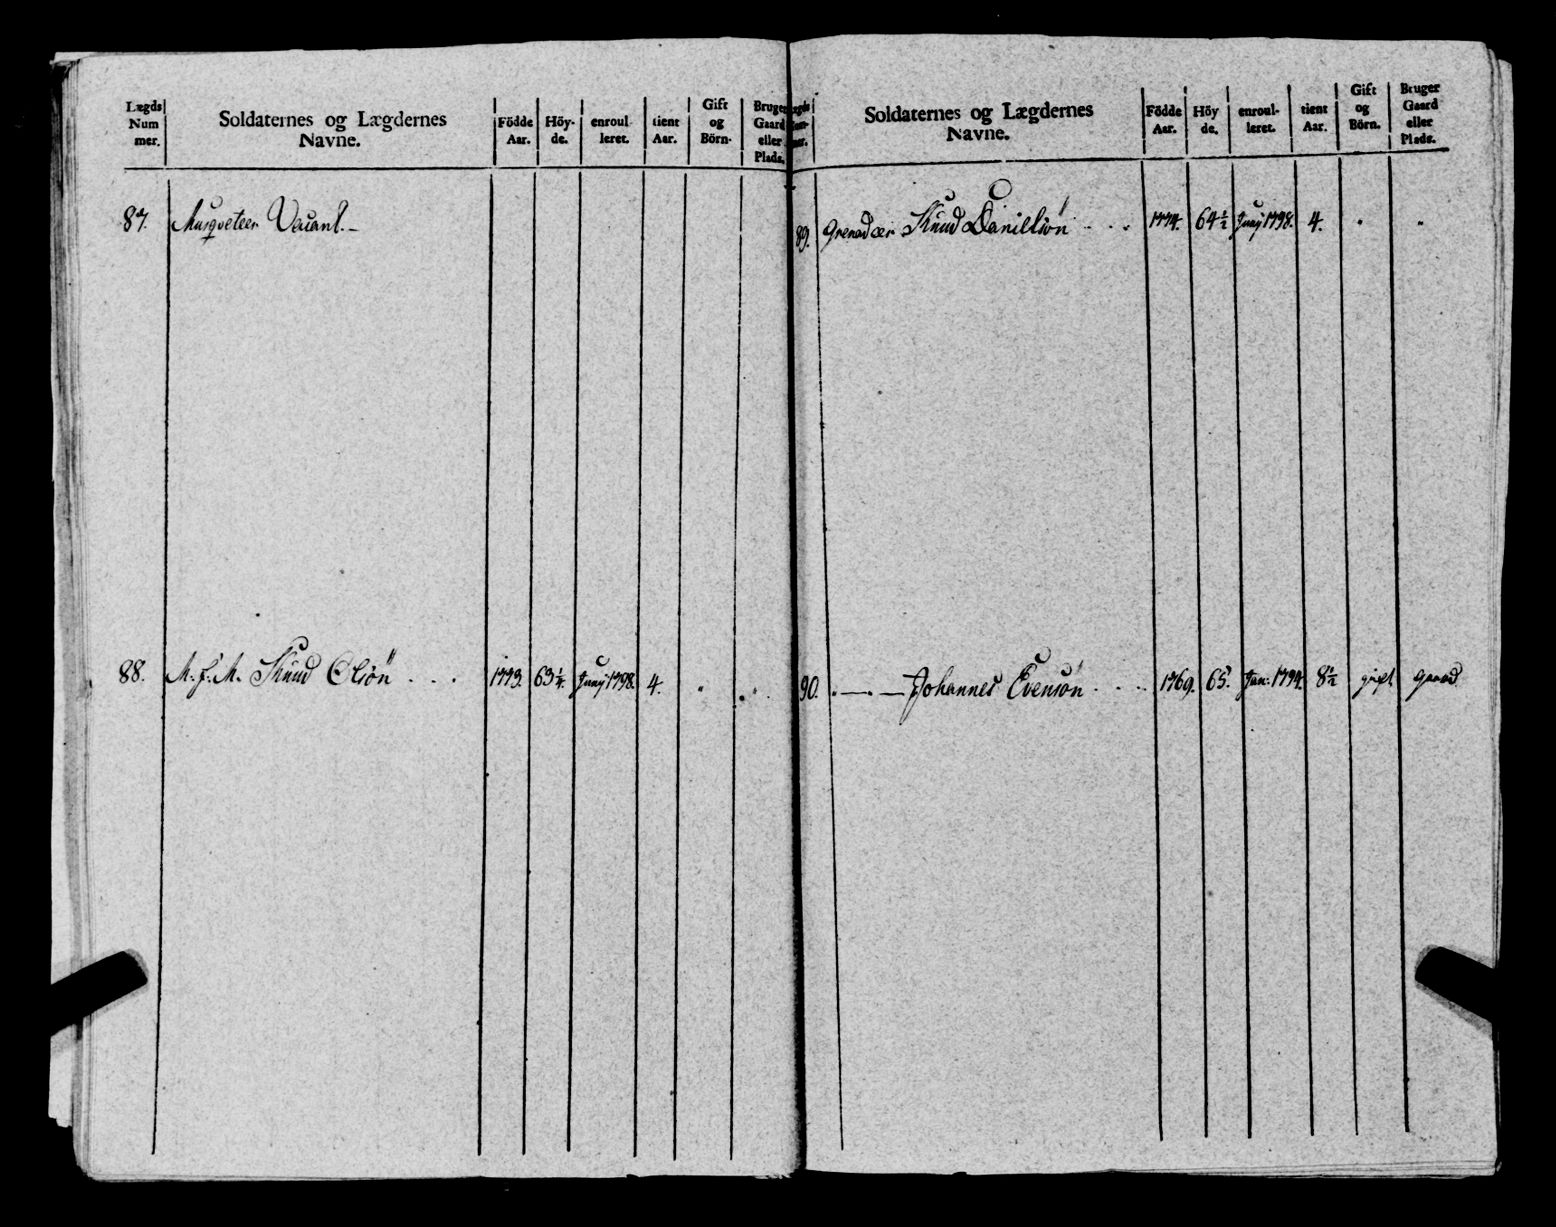 Lægds Num mer. Soldaternes og Lægdernes Navne. Födde Aar. Höy- de. enroul leret. tient Aar. Gift og Börn. Bruger Gaard eller Plads.
87. Musqveteer Vacant.
88. M. f. M. Knud Olsön 1773. 63 1/4. Junj 1798. 4.
Soldaternes og Lægdernes Navne. Födde Aar. Höy de. enroul- leret. tient Aar. Gift og Börn. Bruger Gaard eller Plads.
89. Grenadær Knud Danillsön 1774. 64 1/2 Junj 1798. 4.
90. — Johannes Evensön 1769. 65. Jan: 1794. 8 1/2 gift gaard